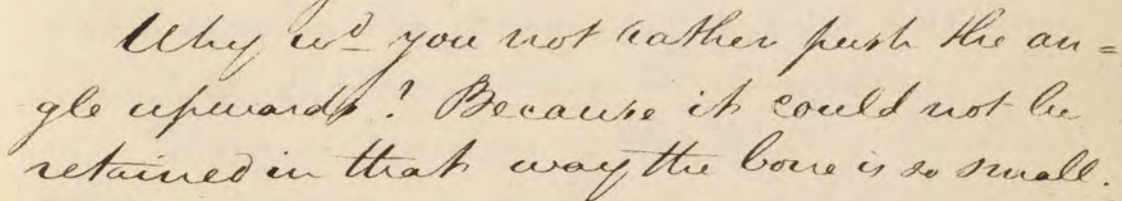 Why wd you not rather push the an=
gle upwards? Because it could not be
retained in that way the bone is so small.